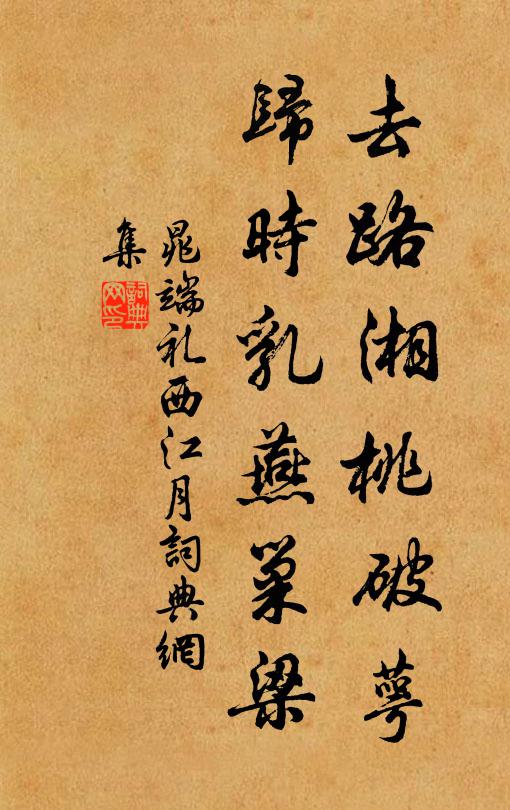 去路湘桃破萼
歸時乳燕巢梁
晁端礼西江月詞典網
集
詞典
网印